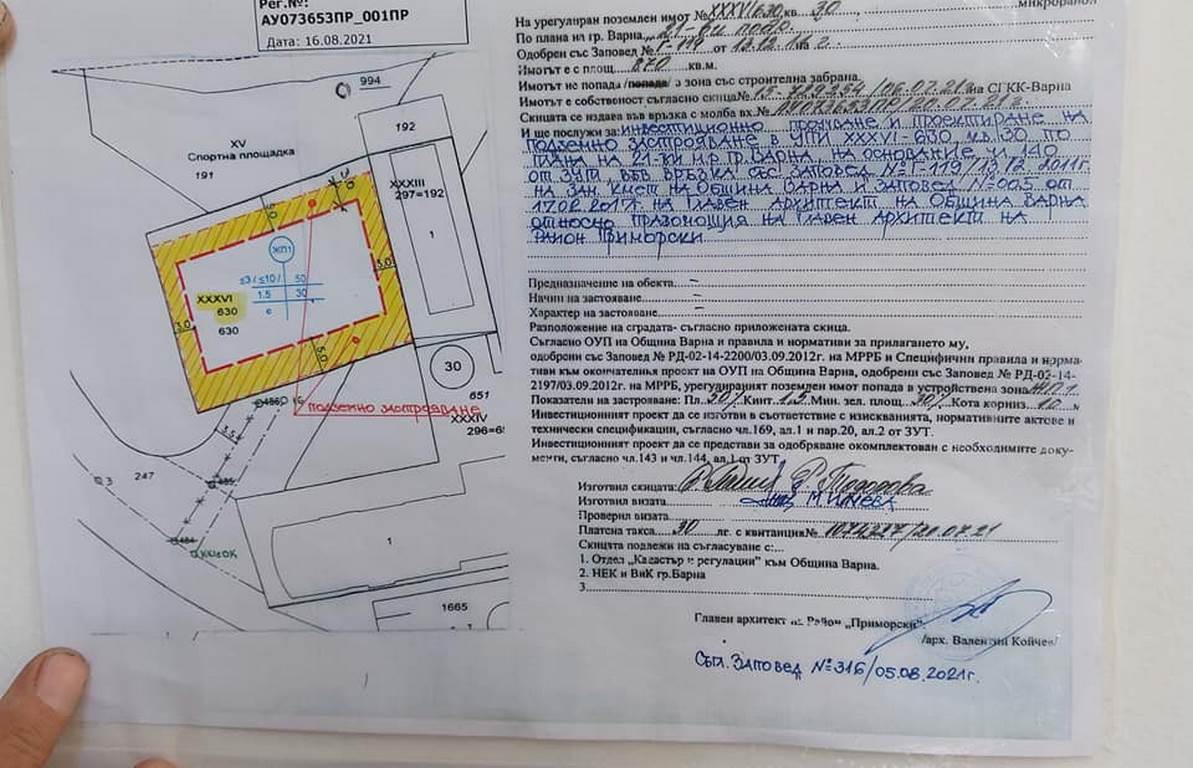 Рег.№:
АУ073653ПР_001ПР
Дата: 16.08.2021
994
192
XV
Спортна площадка
191
XXXIII
297=192
1
5.0
3.0
ЖП1
≤3/(≤10/ 50
1.5 30
с
XXXVI
630
630
3.0
3.0
5.0
30
651
подземно застрояване
XXXIV
296=6
3.5
247
3
485
484
1
1665
На урегулиран поземлен имот № XXXVI 630 кв. 30, микрорайон
По плана на гр. Варна, 21-ви подр.
Одобрен със Заповед № Г-119 от 13.12.11г.
Имотът е с площ 870 кв.м.
Имотът не попада /попада/ в зона със строителна забрана.
Имотът е собственост съгласно скица№ 15-789254/06.07.21г. на СГКК-Варна
Скицата се издава във връзка с молба вх.№ АУ073653ПР/20.07.21г.
И ще послужи за: инвестиционно проучване и проектиране на
подземно застрояване в УПИ XXXVI-630, кв.30 по
плана на 21-ки м.р. гр. Варна, на основание чл.140
от ЗУТ, във връзка със Заповед №Г-119/13.12.2011г.
на Зам. Кмет на Община Варна и Заповед №005 от
17.02.2017г. на Главен Архитект на Община Варна
относно правомощия на Главен Архитект на
Район Приморски
Предназначение на обекта –
Начин на застояване –
Характер на застояване –
Разположение на сградата- съгласно приложената скица.
Съгласно ОУП на Община Варна и правила и нормативи за прилагането му,
одобрени със Заповед № РД-02-14-2200/03.09.2012г. на МРРБ и Специфични правила и норма-
тиви към окончателния проект на ОУП на Община Варна, одобрени със Заповед № РД-02-14-
2197/03.09.2012г. на МРРБ, урегулираният поземлен имот попада в устройствена зона ЖП1
Показатели на застрояване: Пл. 50% Кинт 1,5 Мин. зел. площ 30% Кота корниз 10 м
Инвестиционният проект да се изготви в съответствие с изискванията, нормативните актове и
технически спецификации, съгласно чл.169, ал.1 и пар.20, ал.2 от ЗУТ.
Инвестиционният проект да се представи за одобряване окомплектован с необходимите доку-
менти, съгласно чл.143 и чл.144, ал.1 от ЗУТ
Изготвил скицата: Р. Тодорова
Изготвил визата М.
Проверил визата
Платена такса 30 лг. с квитанция№ 1074227/20.07.21
Скицата подлежи на съгласуване с:
1. Отдел „Кадастър и регулации" към Община Варна.
2. НЕК и ВиК гр.Варна
3
Главен архитект на Район „Приморски":
/арх. Валентин Койчев/
Съгл. Заповед №316/05.08.2021г.